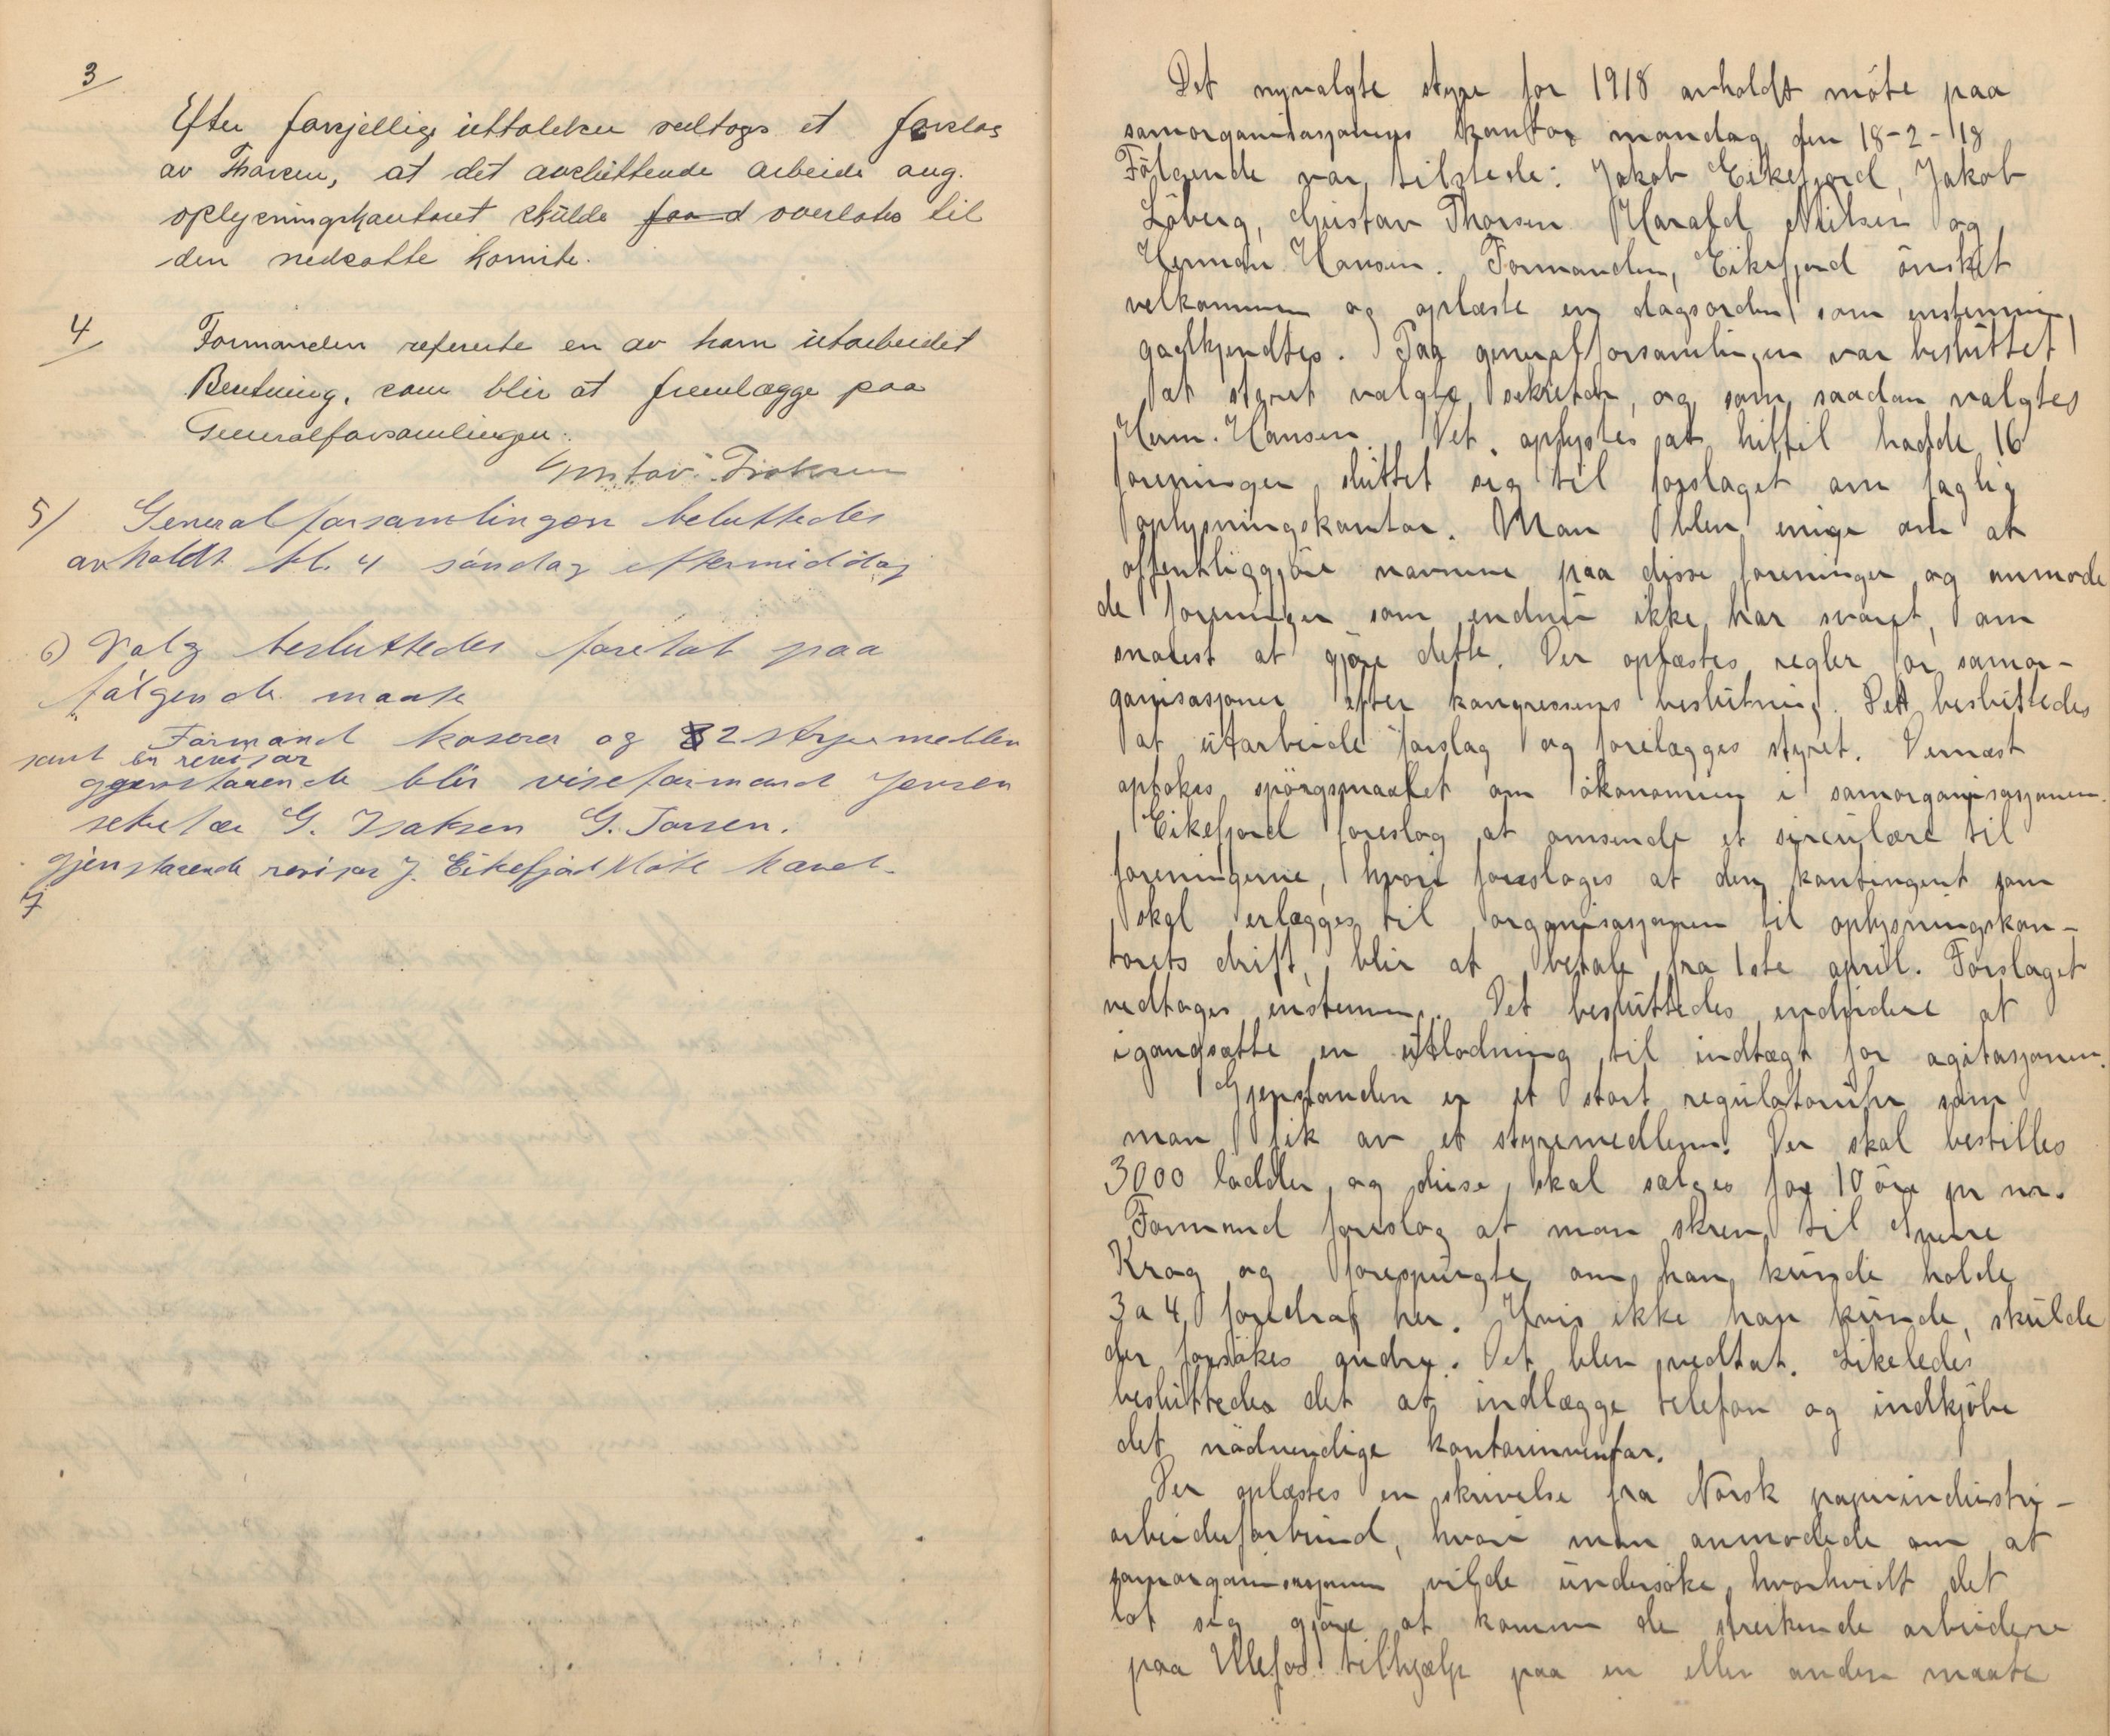 3/
Efter forsjellige üttalelser vedtogs et forslag
av Thorsen, at det avslüttende arbeide ang.
oplysningskontoret skülde overlates til
den nedsatte komite.
4/
Formanden refererte en av ham ütarbeidet
Beretning, som blir at fremlægge paa
Generalforsamlingen.
Gustav
5/ Generalforsamlingen beluttedes
avholdt kl. 4 söndag eftermiddag
6) Valg besluttedes foretat paa
fölgende maate
Formand kaserer og 2 styremedlem
samt en revisor
gjenstaaende blir viseformand Jensen
sekretær G. Isaksen G. Torsen.
gjenstaaende revisor J. Eikefjord
7
Det nyvalgte styre for 1918 avholdt möte paa
samorganisasjonens kontor mandag den 18-2-18
Fölgende var tilstede: Jakob Eikefjord, Jakob
Löberg, Gustav Thorsen Harald Nilsen og
Herman Hansen. Formanden, Eikefjord önsket
velkommen og oplæste en dagsorden som enstemmig
godkjendtes. Paa generalforsamlingen var beslüttet
at styret valgte sekretær, og som saadan valgtes
Herm. Hansen. Det oplystes at hittil hadde 16
foreninger slüttet sig til forslaget om faglig
oplysningskontor. Man blev enige om at
offentliggjöre navnene paa disse foreninger og anmode
de foreninger som endnü ikke har svaret, om
snarest at gjöre dette. Der oplæstes regler for samor-
ganisasjoner efter kongressens beslütning. Det beslüttedes
at ütarbeide forslag og forelægges styret. Dernæst
optokes spörgsmaalet om ökonomien i samorganisasjonen.
Eikefjord foreslog at omsende et sirculære til
foreningerne, hvori foresloges at den kontingent som
skal erlægges til organisasjonen til oplysningskon-
torets drift, blir at betale fra 1ste april. Forslaget
vedtoges enstemmig. Det beslüttedes endvidere at
igangsætte en ütlodning til indtægt for agitasjonen.
Gjenstanden er et stort regülatorühr som
man fik av et styremedlem. Der skal bestilles
3000 lodder, og disse skal sælges for 10 öre pr nr.
Formand foreslog at man skrev til Sverre
Krog og forespürgte om han künde holde
3 a 4 foredrag her. Hvis ikke han künde, skülde
der forsökes andre. Det blev vedtat. Likeledes
beslüttedes det at indlægge telefon og indkjöbe
det nödvendige kontorinventar.
Der oplæstes en skrivelse fra Norsk papirindüstri-
arbeiderforbünd, hvori man anmodede om at
samorganisasjonen vilde ündersöke hvorvidt det
lot sig gjöre at komme de streikende arbeidere
paa Ulefos tilhjælp paa en eller anden maate